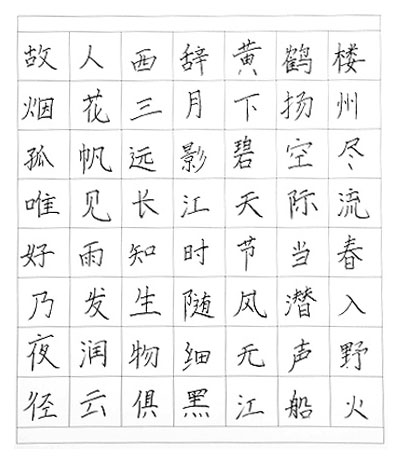 故人西辞黄鹤楼
烟花三月下扬州
孤帆远影碧空尽
唯见长江天际流
好雨知时节当春
乃发生随风潜入
夜润物细无声野
径云俱黑江船火